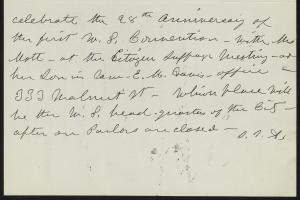 celebrate the 28th Anniversary of
the first W. S. Convention - with Mrs
Mott - at the Citizen Suffrage Meeting - at
her Son in law - E. M. Davis - office -
333 Walnut St - which place will
be the W. S. head-quarters of the City -
after our Parlors are closed -
S. B. A.